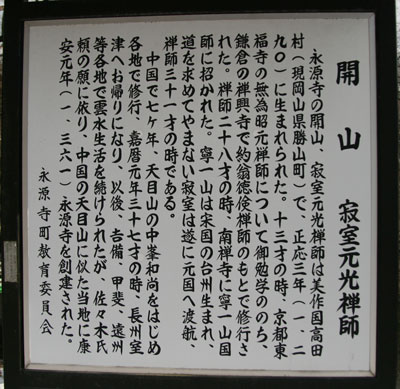 開山　寂室元光禅師
　永源寺の開山、寂室元光禅師は美作国高田
村（現岡山県勝山町）で、正応三年（一、二
九〇）に生まれられた。十三才の時、京都東
福寺の無為昭元禅師について御勉学ののち、
鎌倉の禅興寺で約翁徳倹禅師のもとで修行さ
れた。禅師二十八才の時、南禅寺に寧一山国
師に招かれた。寧一山は宋国の台州生まれ、
道を求めてやまない寂室は遂に元国へ渡航、
禅師三十一才の時である。
　中国で七ヶ年、天目山の中峯和尚をはじめ
各地で修行、嘉暦元年三十七才の時、長州室
津へお帰りになり、以後、吉備、甲斐、遠州
等各地で雲水生活を続けられたが、佐々木氏
頼の願に依り、中国の天目山に似た当地に康
安元年（一、三六一）永源寺を創建された。
永源寺町教育委員会